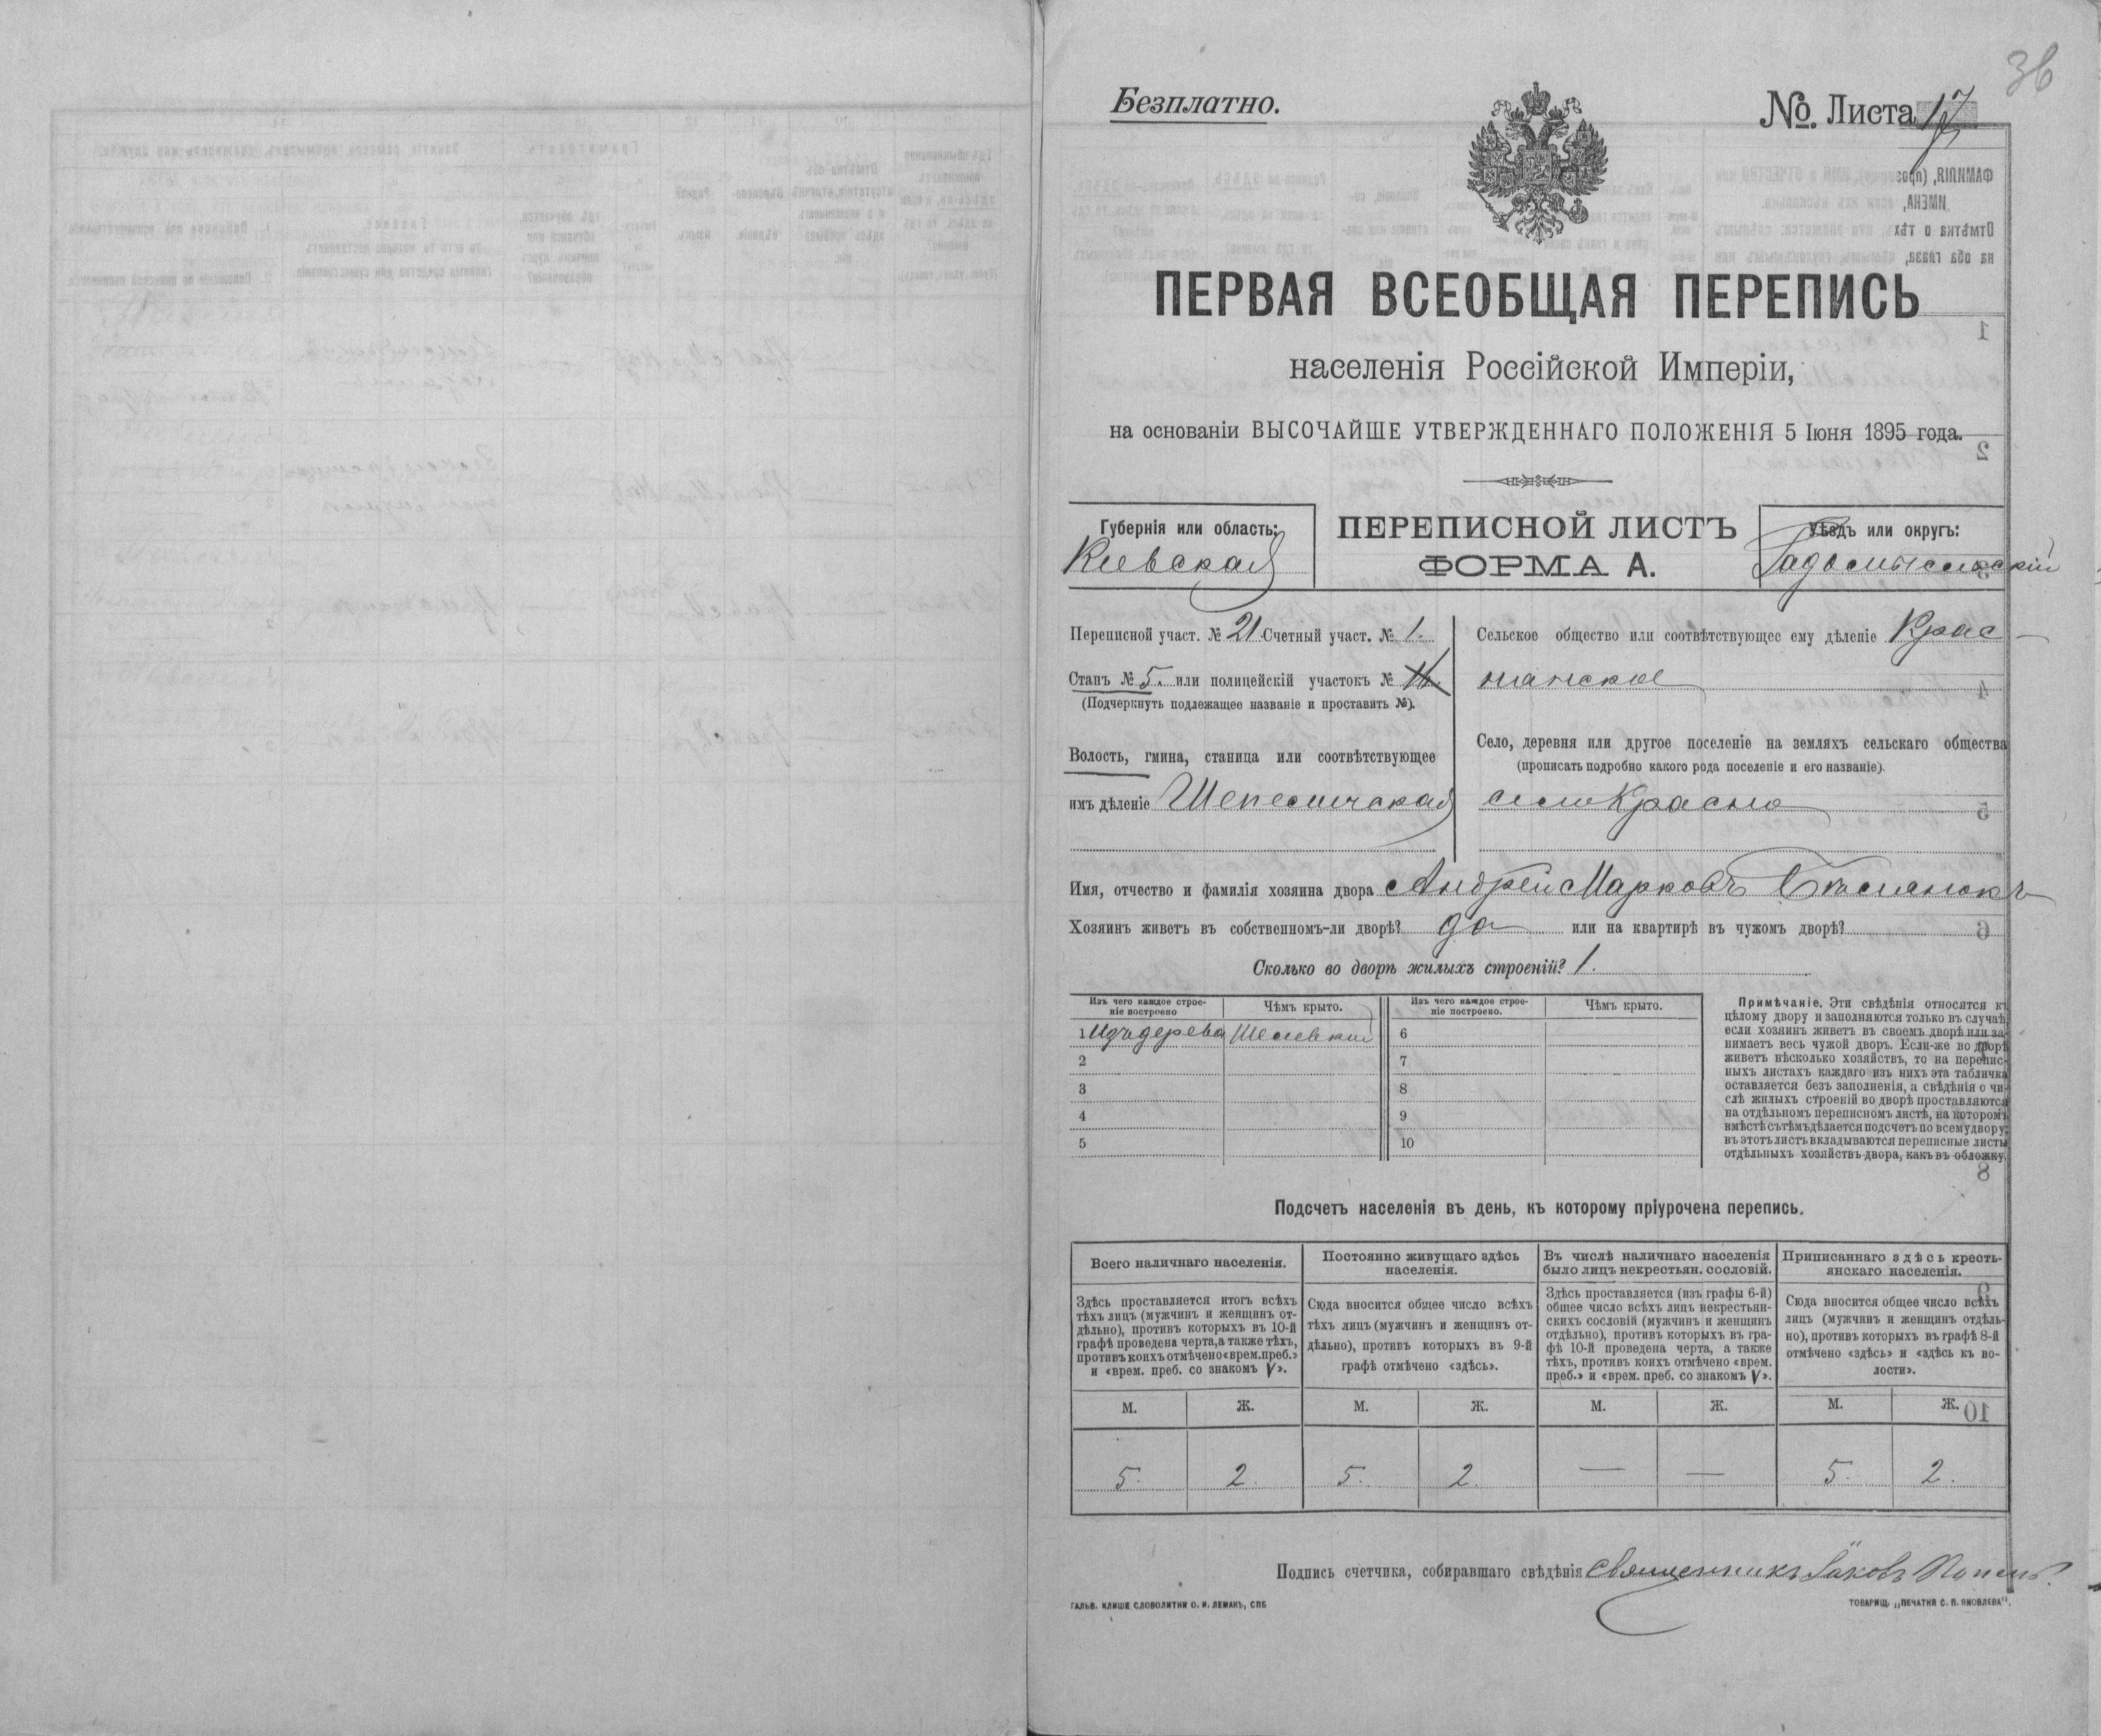 36
Безплатно.
№ Листа 17
ПЕРВАЯ ВСЕОБЩАЯ ПЕРЕПИСЬ
населенія Россійской Имперіи,
на основаніи ВЫСОЧАЙШЕ УТВЕРЖДЕННАГО ПОЛОЖЕНІЯ 5 Іюня 1895 года.
Губернія или область:
Кіевская
ПЕРЕПИСНОЙ ЛИСТЪ
ФОРМА А.
Уѣздъ или округъ:
Радомысльскій
Переписной участ. № 21 Счетный участ. № 1.
Станъ № 5. или полицейскій участокъ №
(Подчеркнуть подлежащее названіе и проставить №).
Волость, гмина, станица или соотвѣтствующее
имъ дѣленіе Шепеличская
Сельское общество или соотвѣтствующее ему дѣленіе Крас-
нянское
Село, деревня или другое поселеніе на земляхъ сельскаго общества
(прописать подробно какого рода поселеніе и его названіе).
село Красно
Имя, отчество и фамилія хозяина двора Андрей Марковъ
Хозяинъ живетъ въ собственномъ-ли дворѣ? да или на квартирѣ въ чужомъ дворѣ?
Сколько во дворѣ жилыхъ строеній? 1.
Изъ чего каждое строе-
ніе построено
Чѣмъ крыто.
Изъ чего каждое строе-
ніе построено.
Чѣмъ крыто.
1 Изъ дерева
6
2
7
3
8
4
9
5
10
Примѣчаніе. Эти свѣдѣнія относятся къ
цѣлому двору и заполняются только въ случаѣ,
если хозяинъ живетъ въ своемъ дворѣ или за-
нимаетъ весь чужой дворъ. Если-же во дворѣ
живетъ нѣсколько хозяйствъ, то на перепис-
ныхъ листахъ каждаго изъ нихъ эта табличка
оставляется безъ заполненія, а свѣдѣнія о чи-
слѣ жилыхъ строеній во дворѣ проставляются
на отдѣльномъ переписномъ листѣ, на которомъ
вмѣстѣ съ тѣмъ дѣлается подсчетъ по всему двору;
въ этотъ листъ вкладываются переписные листы
отдѣльныхъ хозяйствъ двора, какъ въ обложку.
Подсчетъ населенія въ день, къ которому пріурочена перепись.
Всего наличнаго населенія.
Здѣсь проставляется итогъ всѣхъ
тѣхъ лицъ (мужчинъ и женщинъ от-
дѣльно), противъ которыхъ въ 10-й
графѣ проведена черта, а также тѣхъ,
противъ коихъ отмѣчено «врем. преб.»
и «врем. преб. со знакомъ V».
Постоянно живущаго здѣсь
населенія.
Сюда вносится общее число всѣхъ
тѣхъ лицъ (мужчинъ и женщинъ от-
дѣльно), противъ которыхъ въ 9-й
графѣ отмѣчено «здѣсь».
Въ числѣ наличнаго населенія
было лицъ некрестьян. сословій.
Здѣсь проставляется (изъ графы 6-й)
общее число всѣхъ лицъ некрестьян-
скихъ сословій (мужчинъ и женщинъ
отдѣльно), противъ которыхъ въ гра-
фѣ 10-й проведена черта, а также
тѣхъ, противъ коихъ отмѣчено «врем.
преб.» и «врем. преб. со знакомъ V».
Приписаннаго здѣсь кресть-
янскаго населенія.
Сюда вносится общее число всѣхъ
лицъ (мужчинъ и женщинъ отдѣль-
но), противъ которыхъ въ графѣ 8-й
отмѣчено «здѣсь» и «здѣсь къ во-
лости».
М. Ж. М. Ж. М. Ж. М. Ж.
5. 2. 5. 2. — — 5. 2.
Подпись счетчика, собиравшаго свѣдѣнія священникъ Іаковъ
ГАЛЬВ. КЛИШЕ СЛОВОЛИТНИ О. И. ЛЕМАНЪ, СПБ
ТОВАРИЩ. „ПЕЧАТНЯ С. П. ЯКОВЛЕВА".